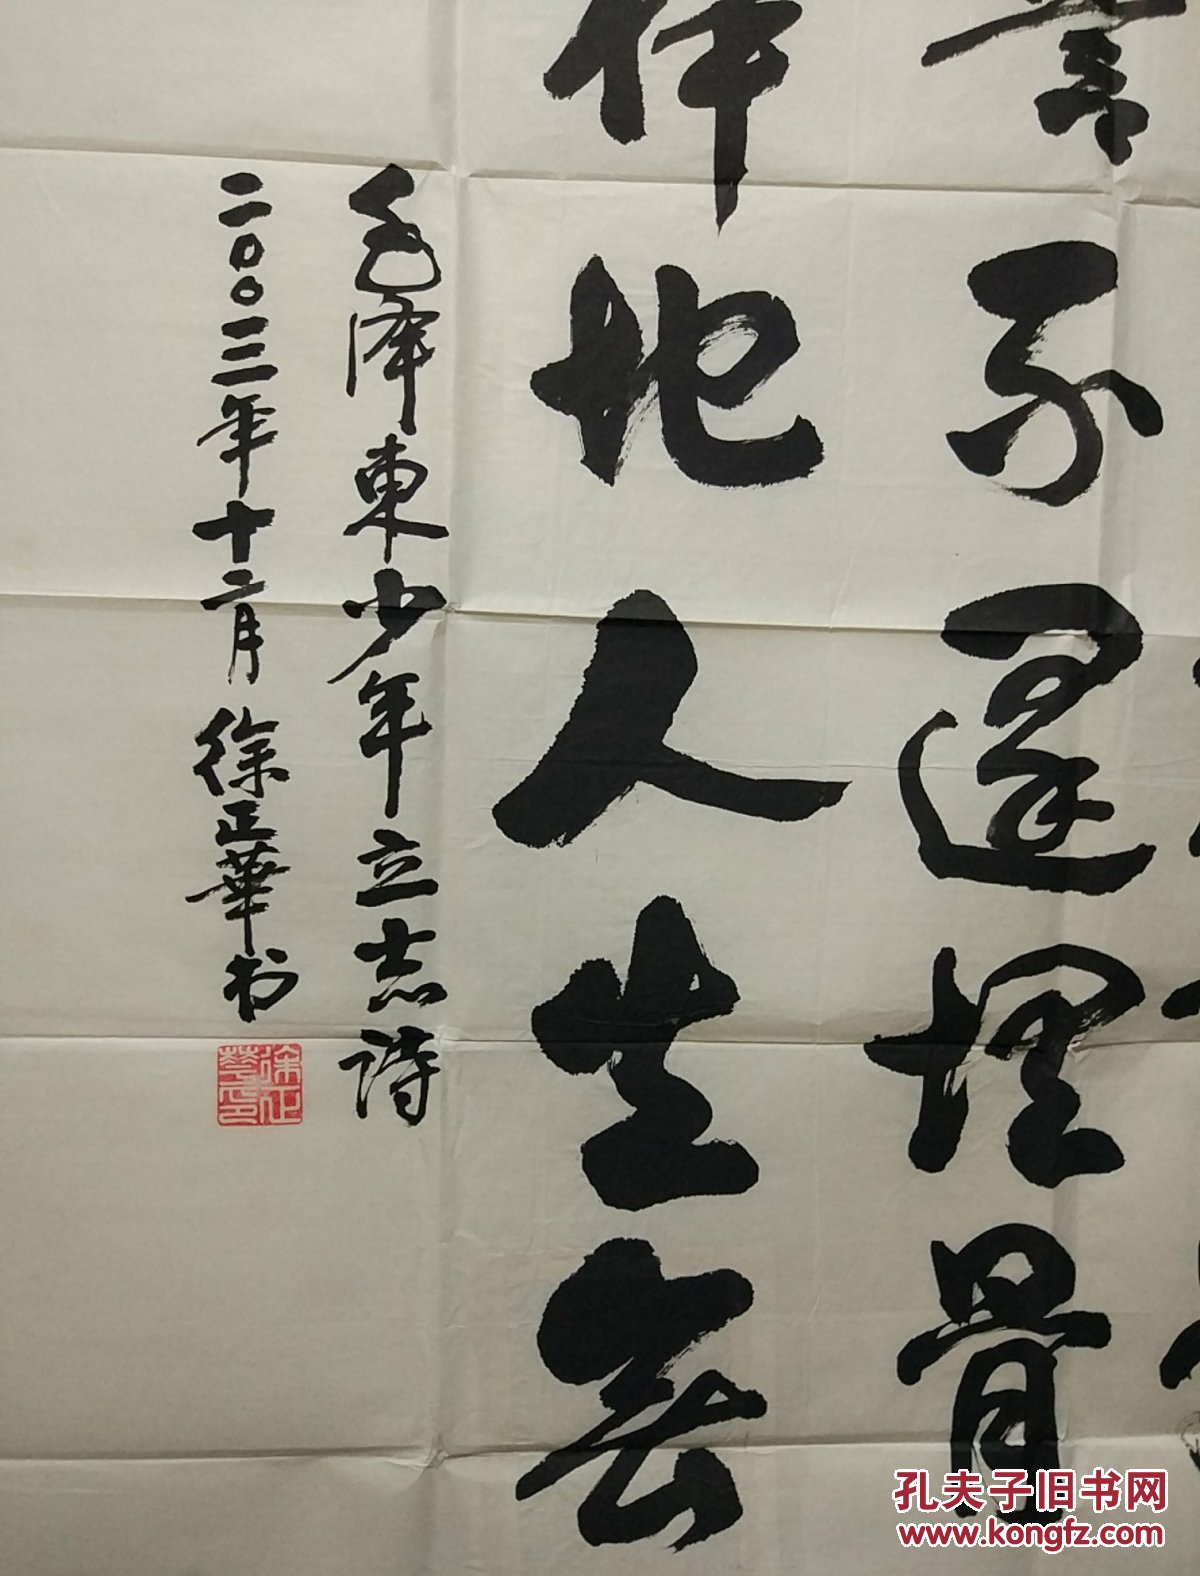 不還埋骨
地人生無
毛泽東少年立志诗
二〇〇三年十二月 徐正華书
徐正華印
孔夫子旧书网
www.kongfz.com